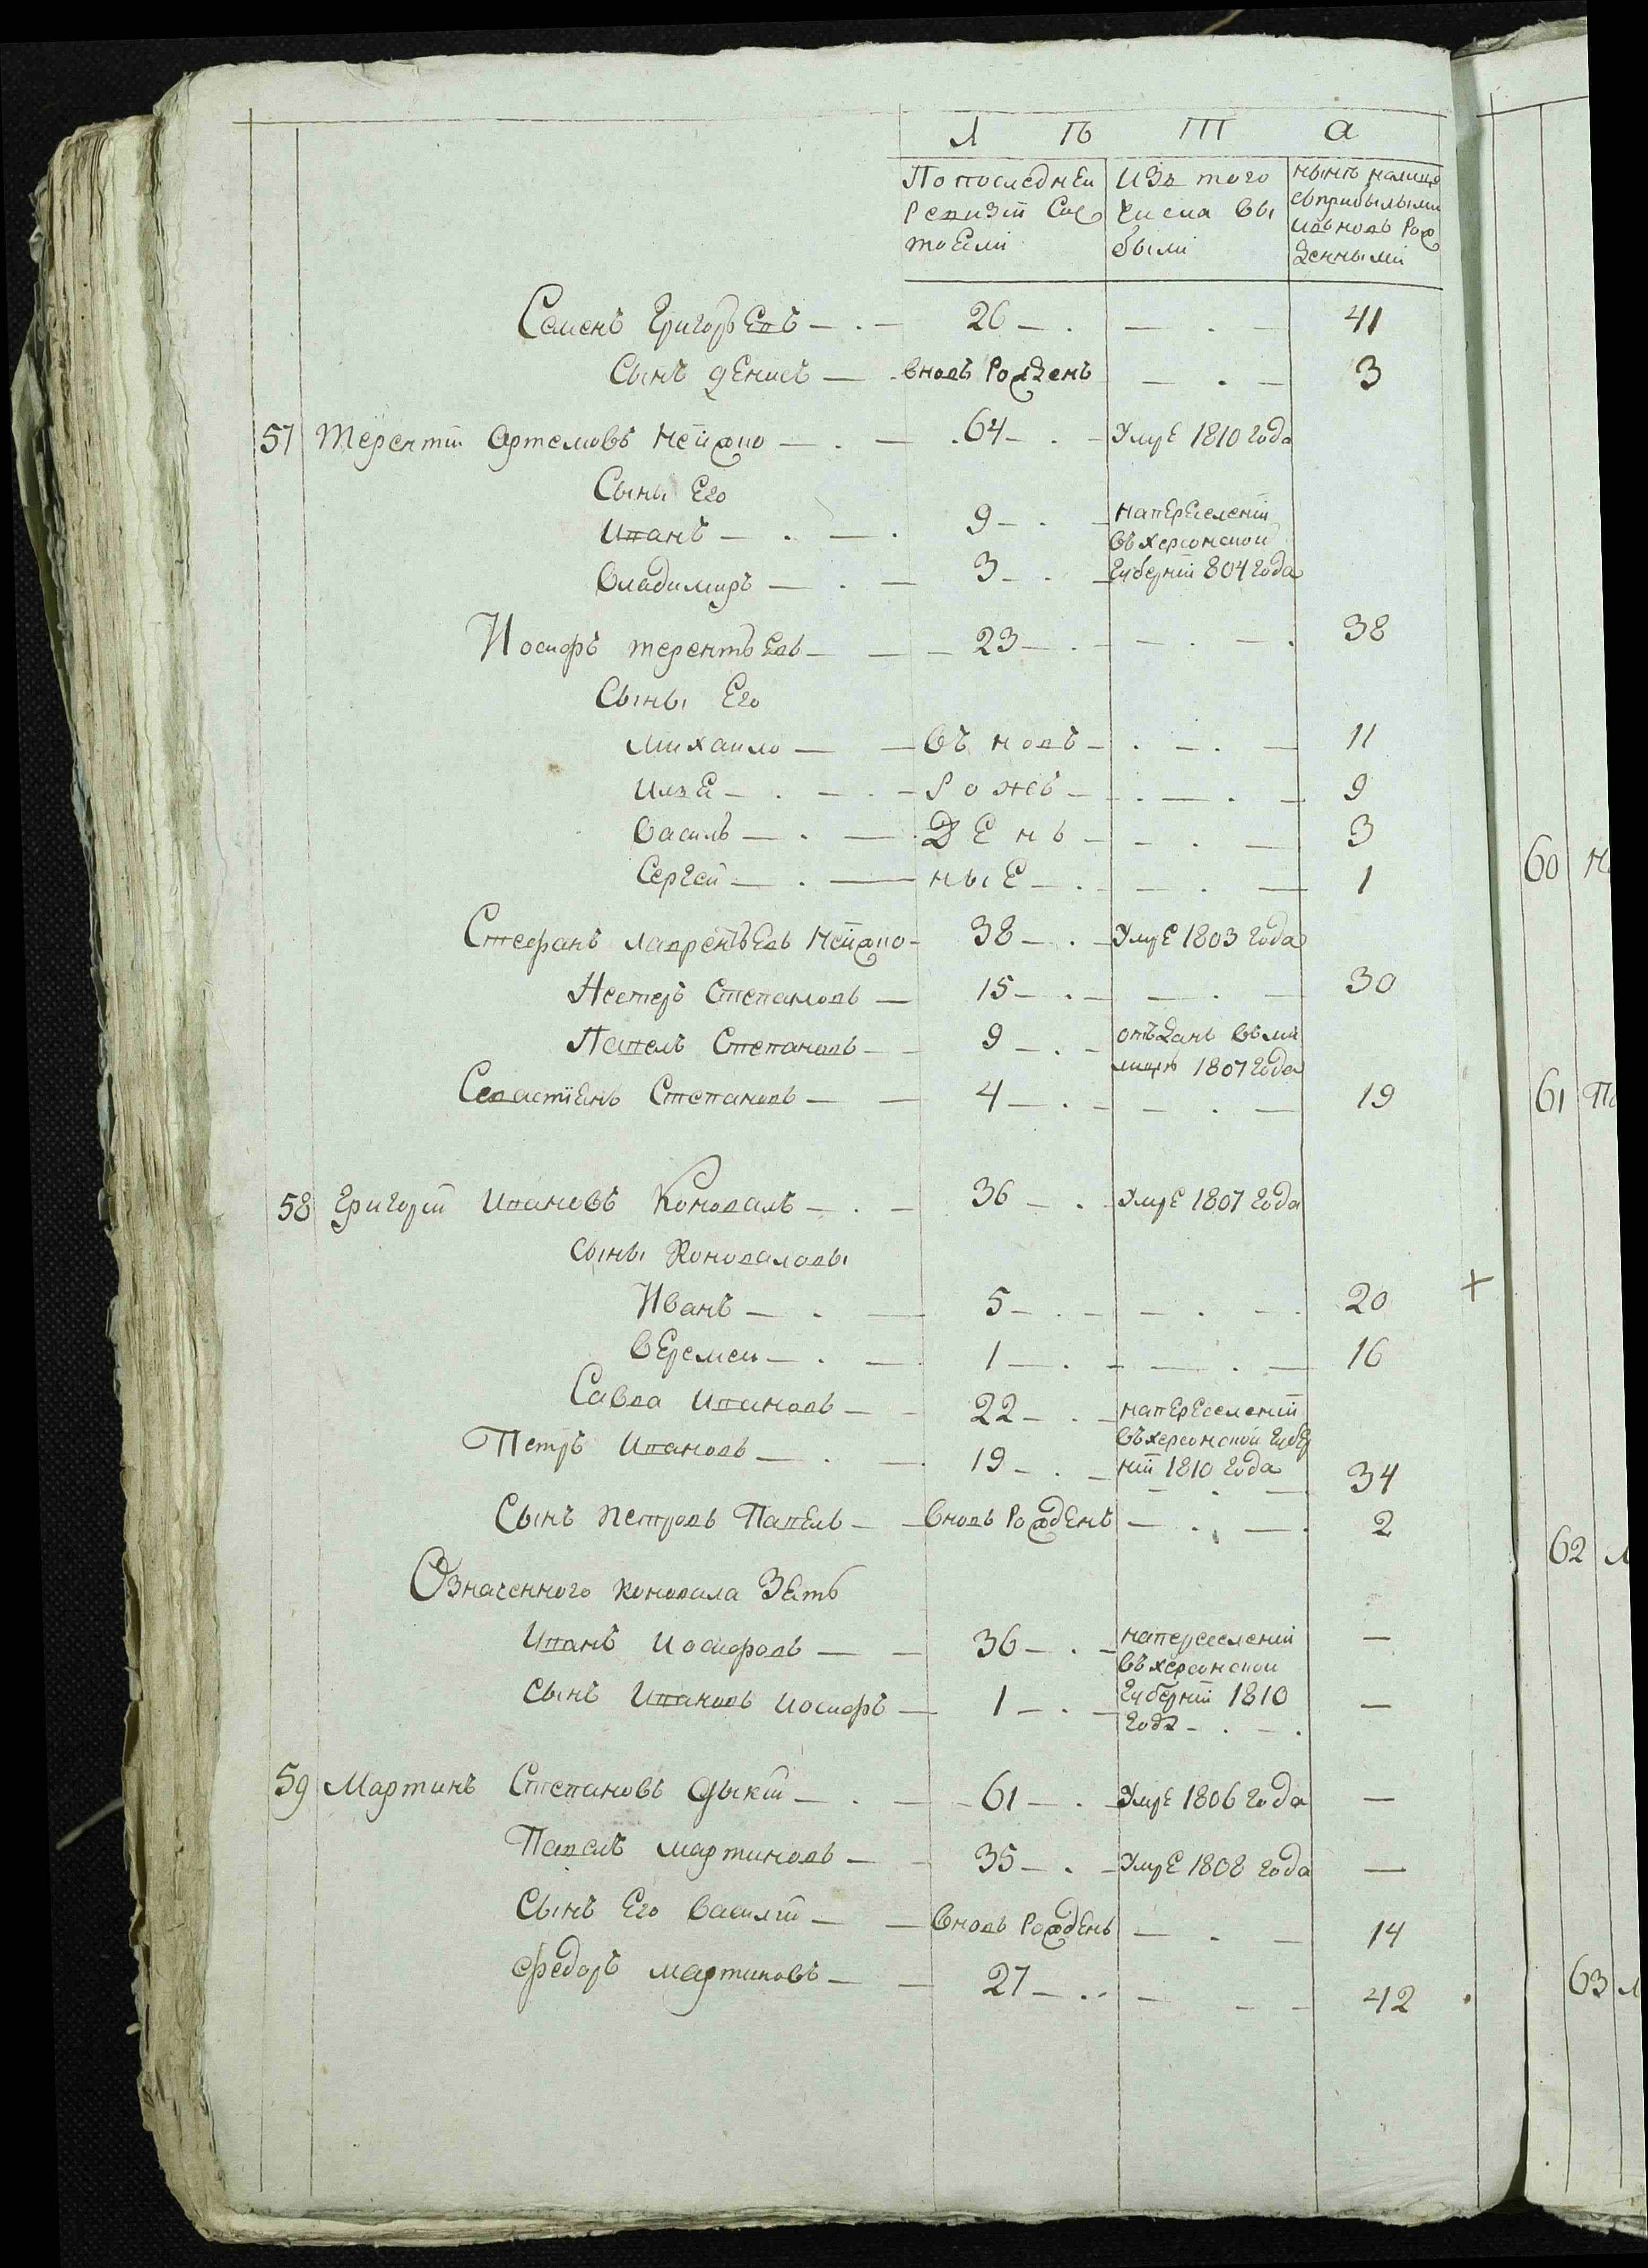 Л Ѣ Т а
По последней Ревизіи Сос тоЕли
Изъ того числа вы были
нынѣ налицо съприбылыми ивъновь Рож денными
Семенъ ГригорьЕвъ — . — 26 — . — . — 41
Сынъ дЕнисъ — вновь Рожденъ — . — 3
57 Терентіи Артемовъ — . — 64 — . — УмрЕ 1810 года
Сыны Его
Иванъ — . — . 9 — . — напЕрЕселеніи
въ херсонскои
Владимиръ — . — 3 — . — Губерніи 804 года
Иосифъ терентьЕвъ — — 23 — . — . — . 38
Сыны Его
михаило — — въ новь — . — . — 11
ИлЪЕ — . — . — Рожъ — . — . — 9
Василь — . — ДЕнъ — — . — 3
Сергей — . — ныЕ — . — . — 1
Стефанъ лаврентьЕвъ — 38 — . — УмрЕ 1803 года
Нестеръ Степановъ — 15 — . — — . — 30
Павелъ Степановъ — — 9 — . — отъданъ въ ми
лицію 1807 года
СевастіЕнъ Степановъ — — 4 — . — — . — 19
58 Григоріи Ивановъ Коновалъ — . — 36 — . — УмрЕ 1807 года
сыны Коноваловы
Иванъ — . — 5 — . — — . — . 20
вЕремеи — . — . 1 — . — — . — 16
Савва Ивановъ — — 22 — . — напЕрЕселеніи
въ херсонскои губЕр
Петръ Ивановъ — . — 19 — . — ніи 1810 года 34
Сынъ Петровъ Павелъ — — вновь РождЕнъ — . — . 2
Означенного коновала ЗЕть
Иванъ Иосифовъ — — 36 — . — наперееселеніи —
въ херсонскои
сынъ Ивановъ Иосифъ — 1 — . — Губерніи 1810 —
года — . — .
59 Мартинъ Степановъ дыкіи — . — 61 — . — УмрЕ 1806 года —
Павелъ мартиновъ — — 35 — . — УмрЕ 1808 года —
Сынъ Его василіи — — вновь РождЕнъ — . — 14
федоръ мартиновъ — — 27 — . . — — — 42
60
61
62
63